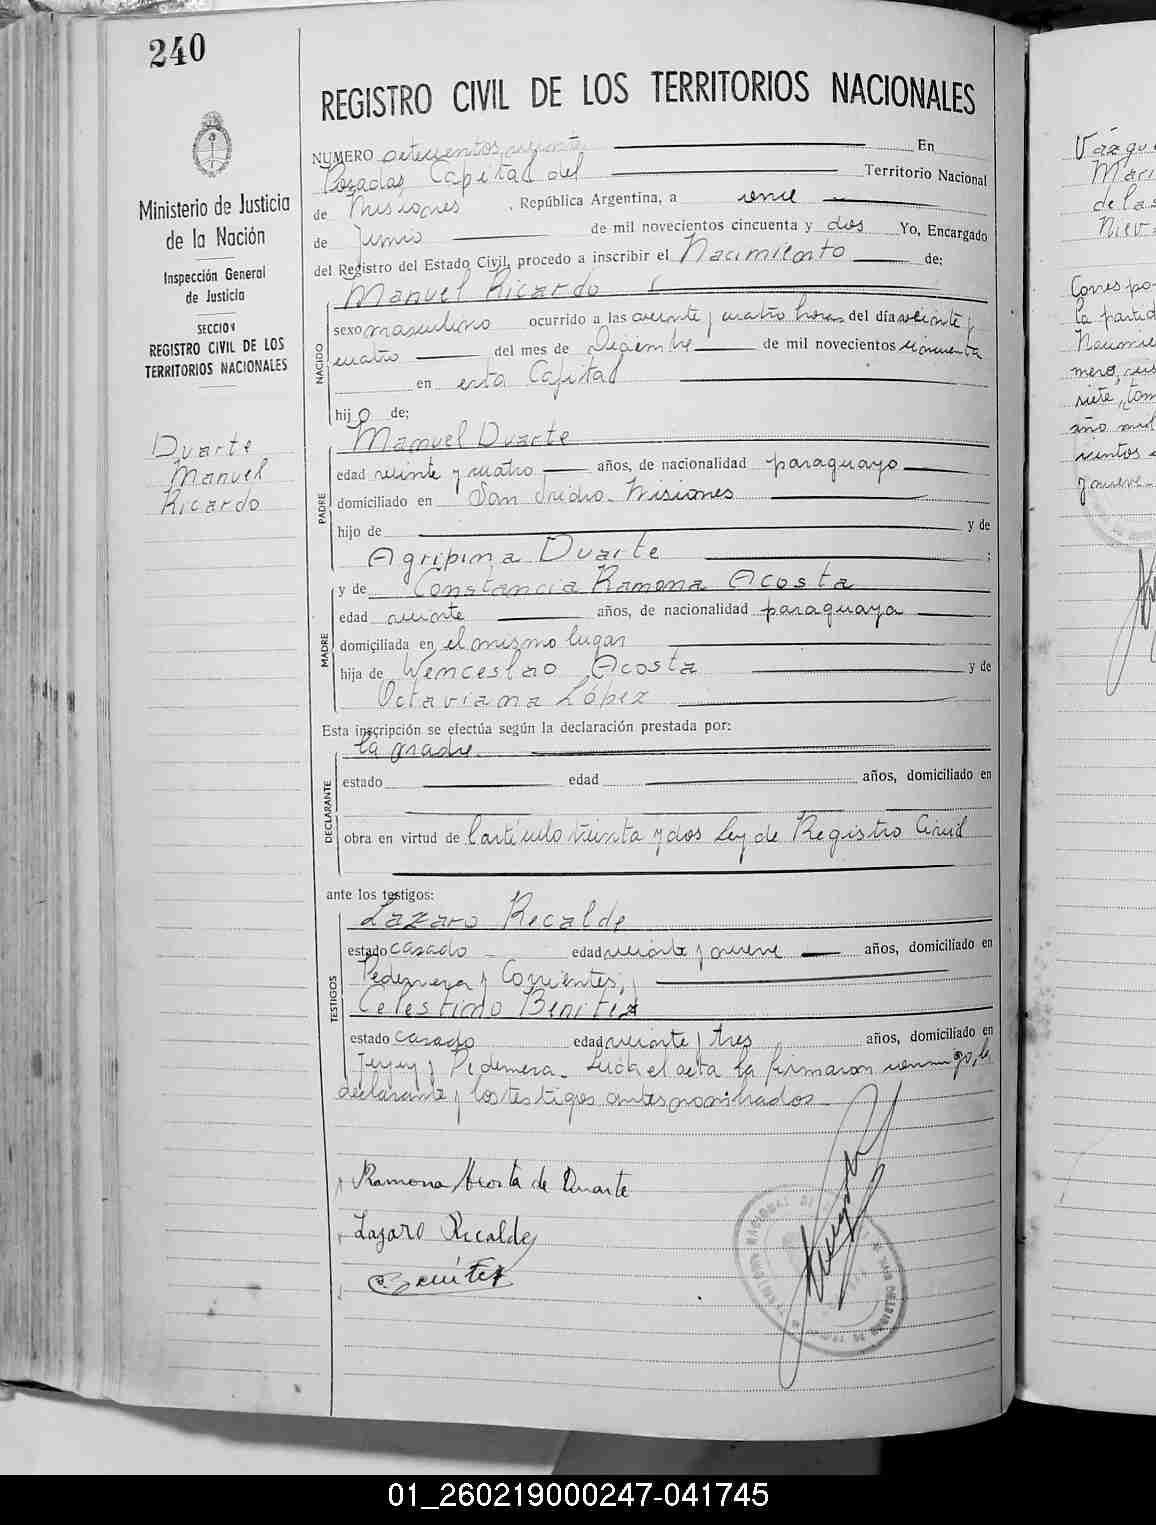 240
REGISTRO CIVIL DE LOS TERRITORIOS NACIONALES
Ministerio de Justicia
de la Nación
Inspección General
de Justicia
SECCION
REGISTRO CIVIL DE LOS
TERRITORIOS NACIONALES
Duarte
Manuel
Ricardo
NUMERO En
Posadas Capital del Territorio Nacional
de Misiones, República Argentina, a once
de Junio de mil novecientos cincuenta y dos Yo, Encargado
del Registro del Estado Civil, procedo a inscribir el Nacimiento de:
Manuel Ricardo
NACIDO
sexo masculino ocurrido a las veinte y cuatro horas del día veinte y
cuatro del mes de Diciembre de mil novecientos cincuenta
en esta Capital
hijo de;
Manuel Duarte
PADRE
edad veinte y cuatro años, de nacionalidad paraguayo
domiciliado en San Isidro - Misiones
hijo de y de
Agripina Duarte ;
y de Constancia Ramona Acosta
MADRE
edad veinte años, de nacionalidad paraguaya
domiciliada en el mismo lugar
hija de Wenceslao Acosta y de
Octaviana López
Esta inscripción se efectúa según la declaración prestada por:
la madre
DECLARANTE
estado edad años, domiciliado en
obra en virtud de l'artículo treinta y dos Ley de Registro Civil
ante los testigos:
Lazaro Recalde
TESTIGOS
estado casado edad veinte y nueve años, domiciliado en
Pedernera y Corrientes, y
Celestino Benitez
estado casado edad veinte y tres años, domiciliado en
y Pedernera. Leída el acta la firmaron conmigo, la
declarante y los testigos antes nombrados
Ramona Acosta de Duarte
Lazaro Recalde
C. Benítez
01_260219000247-041745